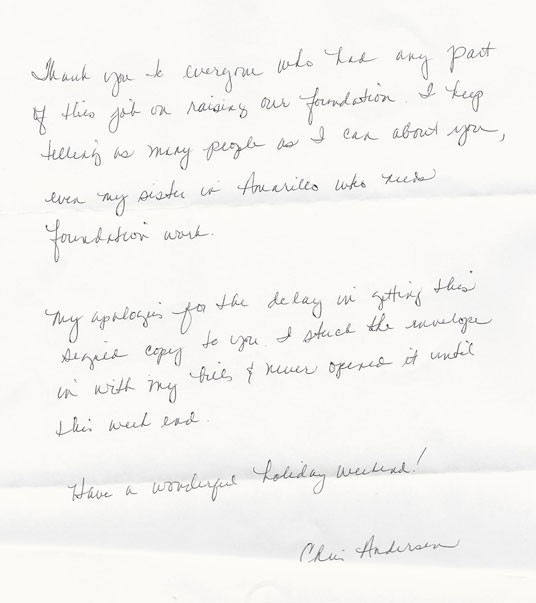 Thank you to everyone who had any part
of this job on raising our foundation. I keep
telling as many people as I can about you,
even my sister in Amarillo who needs
foundation work.
My apologies for the delay in getting this
signed copy to you. I stuck the envelope
in with my bills & never opened it until
this week end.
Have a wonderful holiday weekend!
Chris Andersen